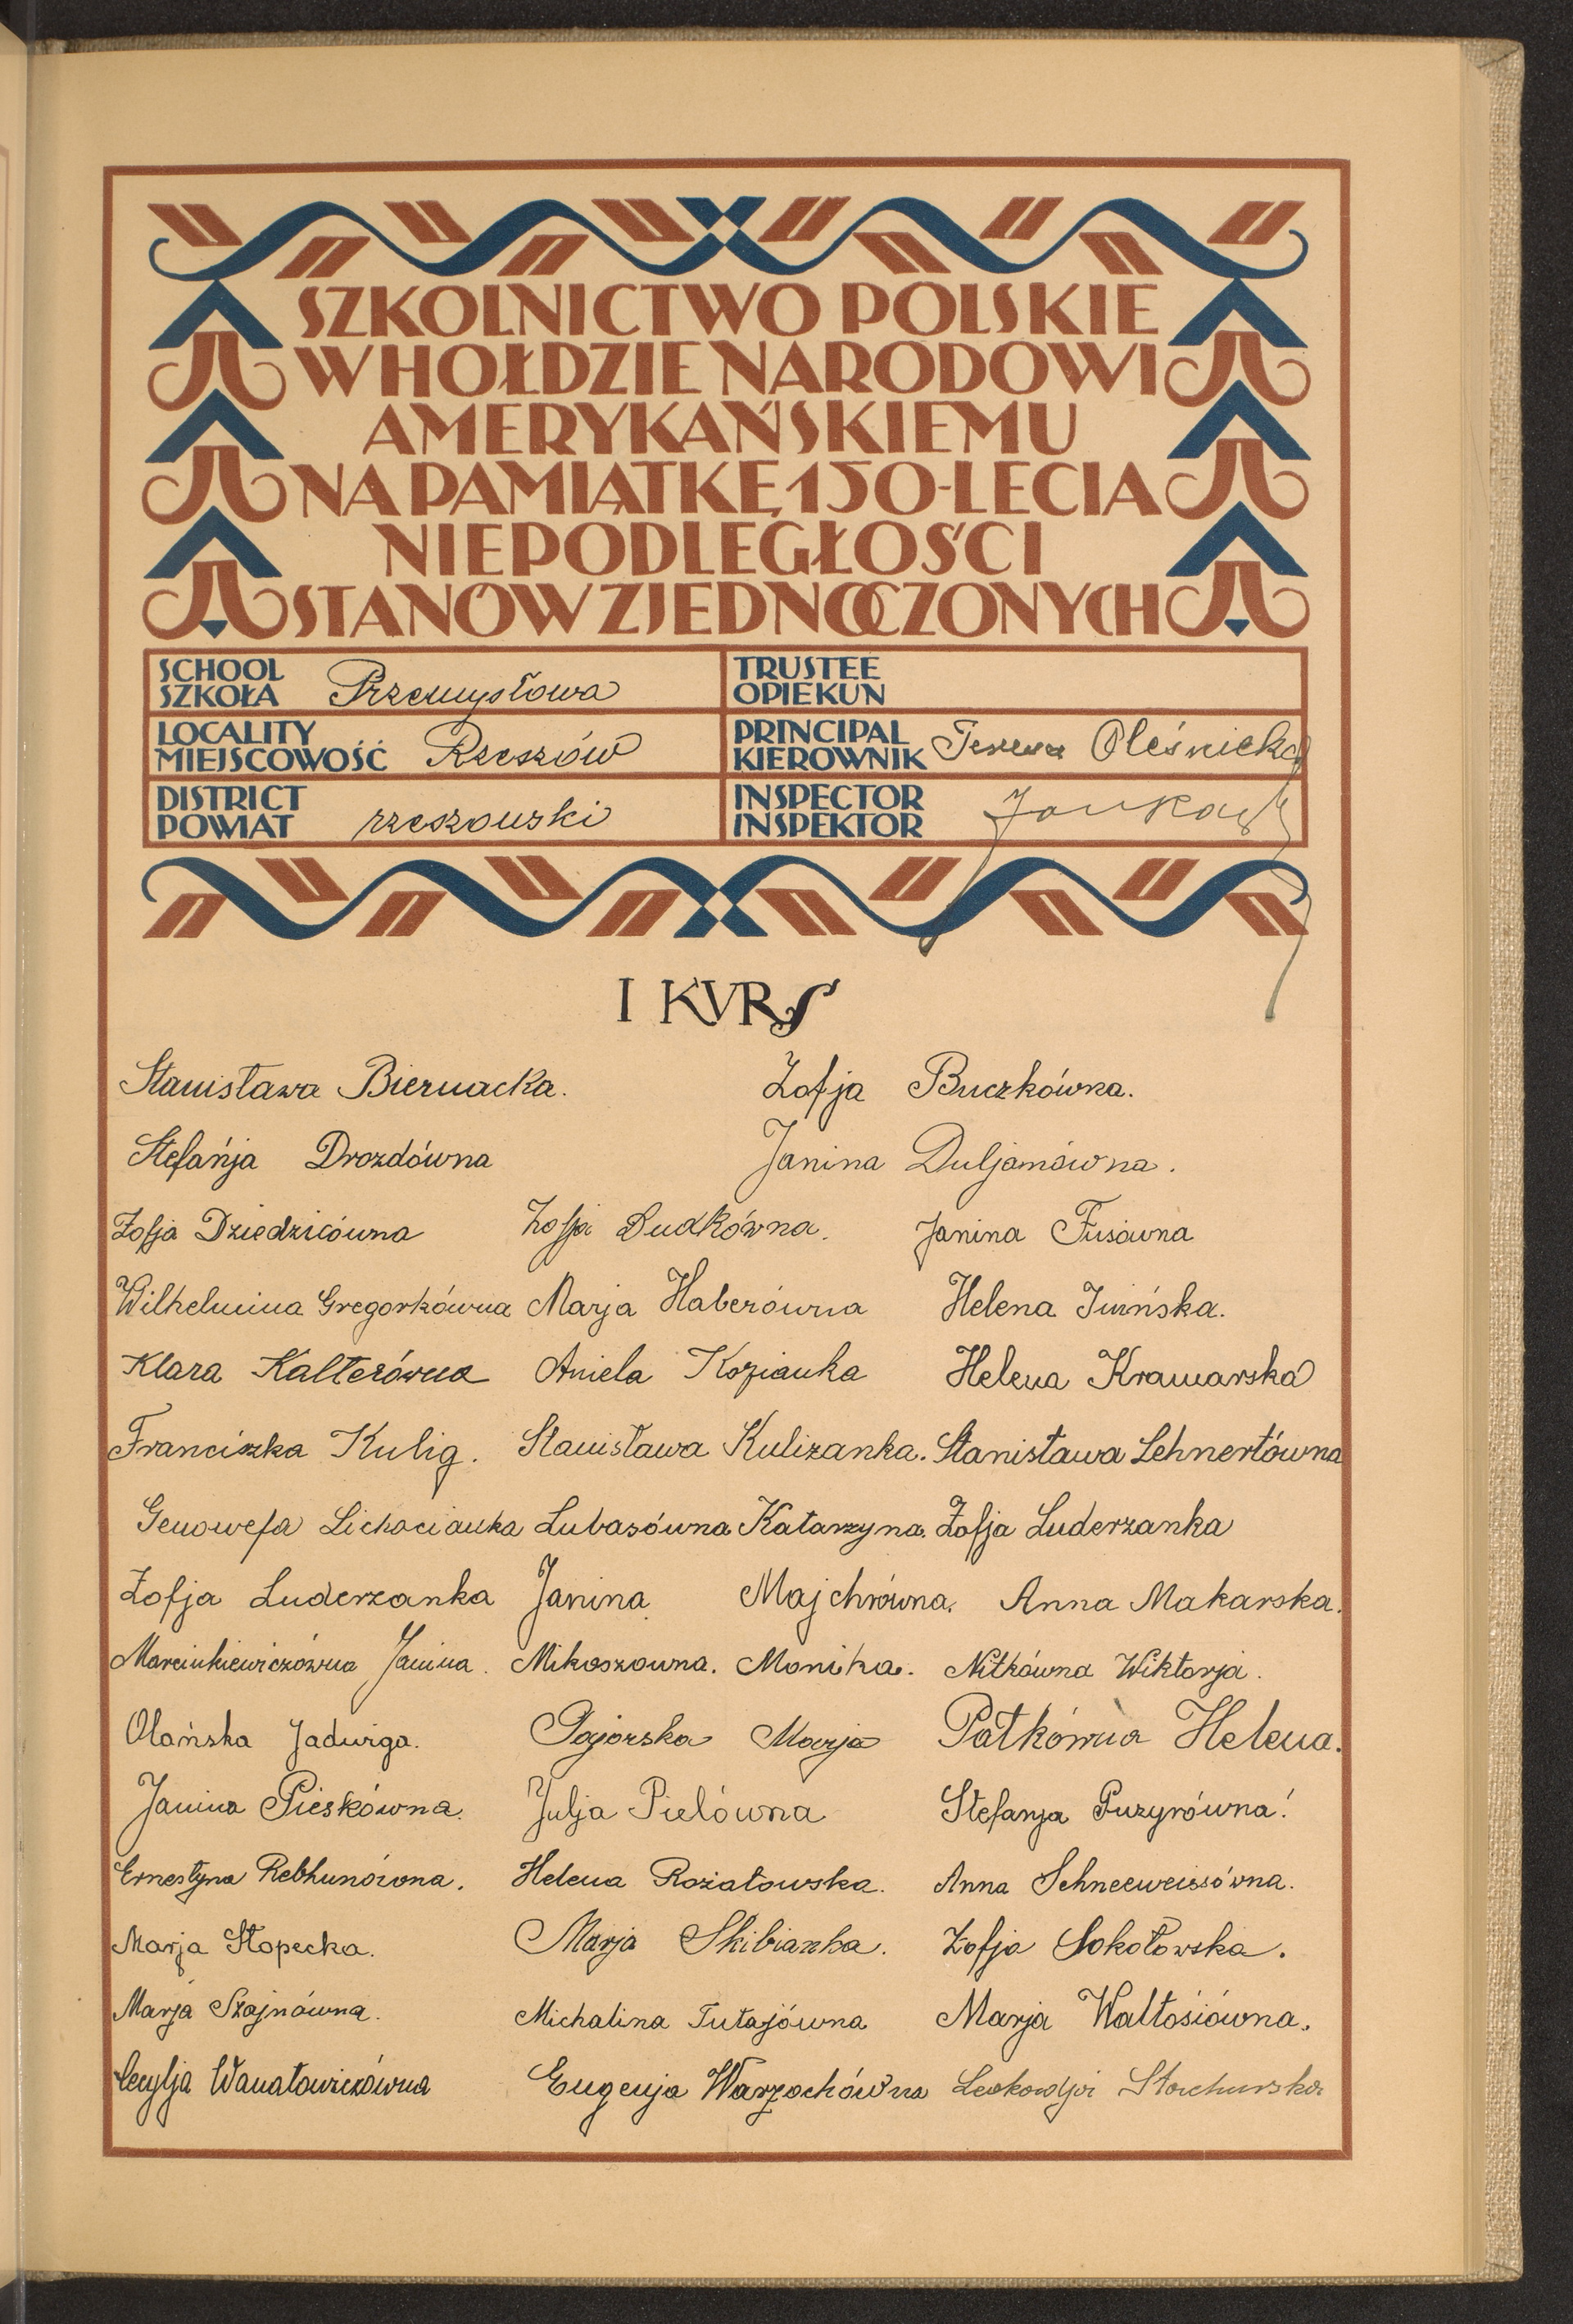 SZKOLNICTWO POLSKIE
W HOŁDZIE NARODOWI
AMERYKAŃSKIEMU
NA PAMIĄTKĘ 150-LECIA
NIEPODLEGŁOŚCI
STANÓW ZJEDNOCZONYCH
SCHOOL
SZKOŁA Przemysłowa
TRUSTEE
OPIEKUN
LOCALITY
MIEJSCOWOŚĆ Rzeszów
PRINCIPAL
KIEROWNIK Teresa Oleśnicka
DISTRICT
POWIAT rzeszowski
INSPECTOR
INSPEKTOR
I KVRS
Stanisława Biernacka. Zofja Buczkówna.
Stefańja Drozdówna Janina Duljanówna.
Zofja Dziedzicówna Zofja Dudkówna. Janina Fusówna
Wilhelmina Gregorkówna Marja Haberówna Helena Iwińska.
Klara Kalterówna Aniela Kozianka Helena Kramarska
Franciszka Kulig. Stanisława Kulizanka. Stanisława Lehnertówna
Genowefa Lichocianka Lubasówna Katarzyna. Zofja Luderzanka
Zofja Luderzanka Janina Majchrówna. Anna Makarska.
Marcinkiewiczówna Janina. Mikoszowna. Monika. Nitkówna Wiktorja.
Olańska Jadwiga. Pajorska Marja Patkówna Helena.
Janina Pieskówna. Julja Pielówna Stefanja Puzyrówna!
Ernestyna Rebhunówna. Helena Rożałowska. Anna Schneeweissówna.
Marja Słopecka. Marja Skibianka. Zofja Sokołowska.
Marja Szajnówna. Michalina Tutajówna Marja Waltosiówna.
Cecylja Wanatowiczówna Eugenja Warzochówna Leokadja Stachurska